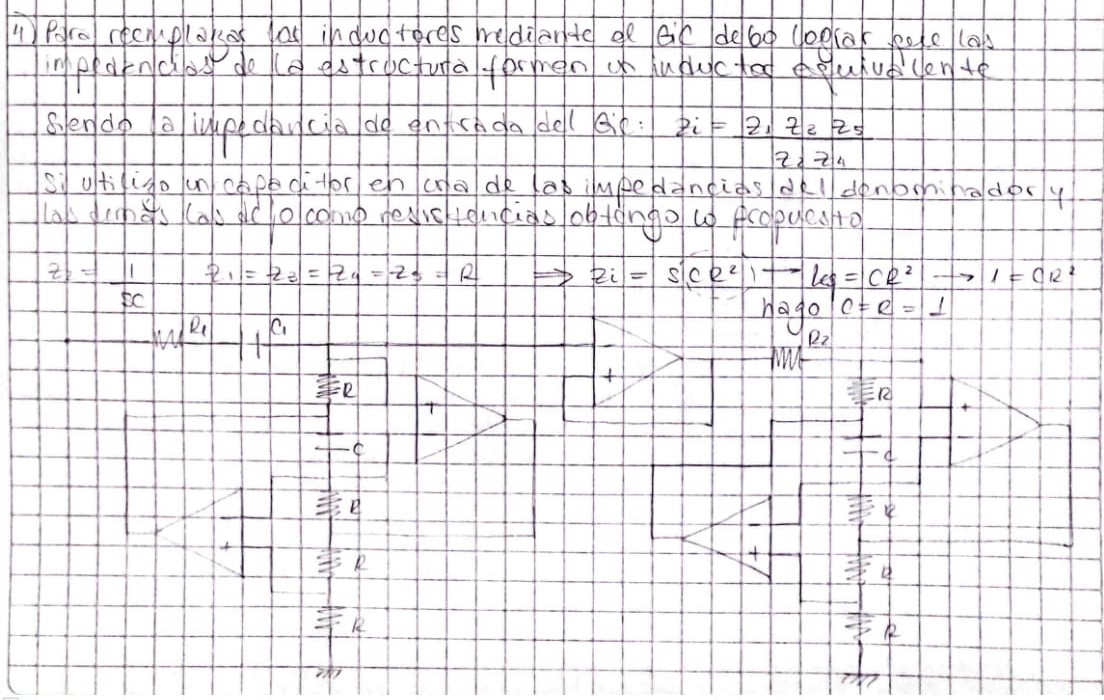 4) Para reemplazar los inductores mediante el GIC debo lograr que las
impedancias de la estructura formen un inductor equivalente
Siendo la impedancia de entrada del GIC: Zi = Z1 Z3 Z5
Z2 Z4
Si utilizo un capacitor en una de las impedancias del denominador y
las demás las dejo como resistencias obtengo lo propuesto
Z2 = 1 Z1 = Z3 = Z4 = Z5 = R ⟹ Zi = S(CR²) → Leq = CR² → 1 = CR²
SC
hago C = R = 1
R1 C1 R2
+
R R
+ +
C C
R R
+ +
R R
R R